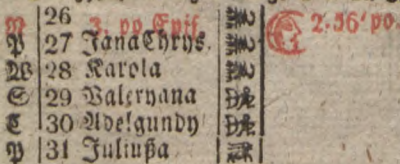 N 26 3. po Epif. 2.56' po.
P 27 Jana Chrys.
W 28 Karola
S 29 Waleryana
C 30 Adelgundy
P 31 Juliußa